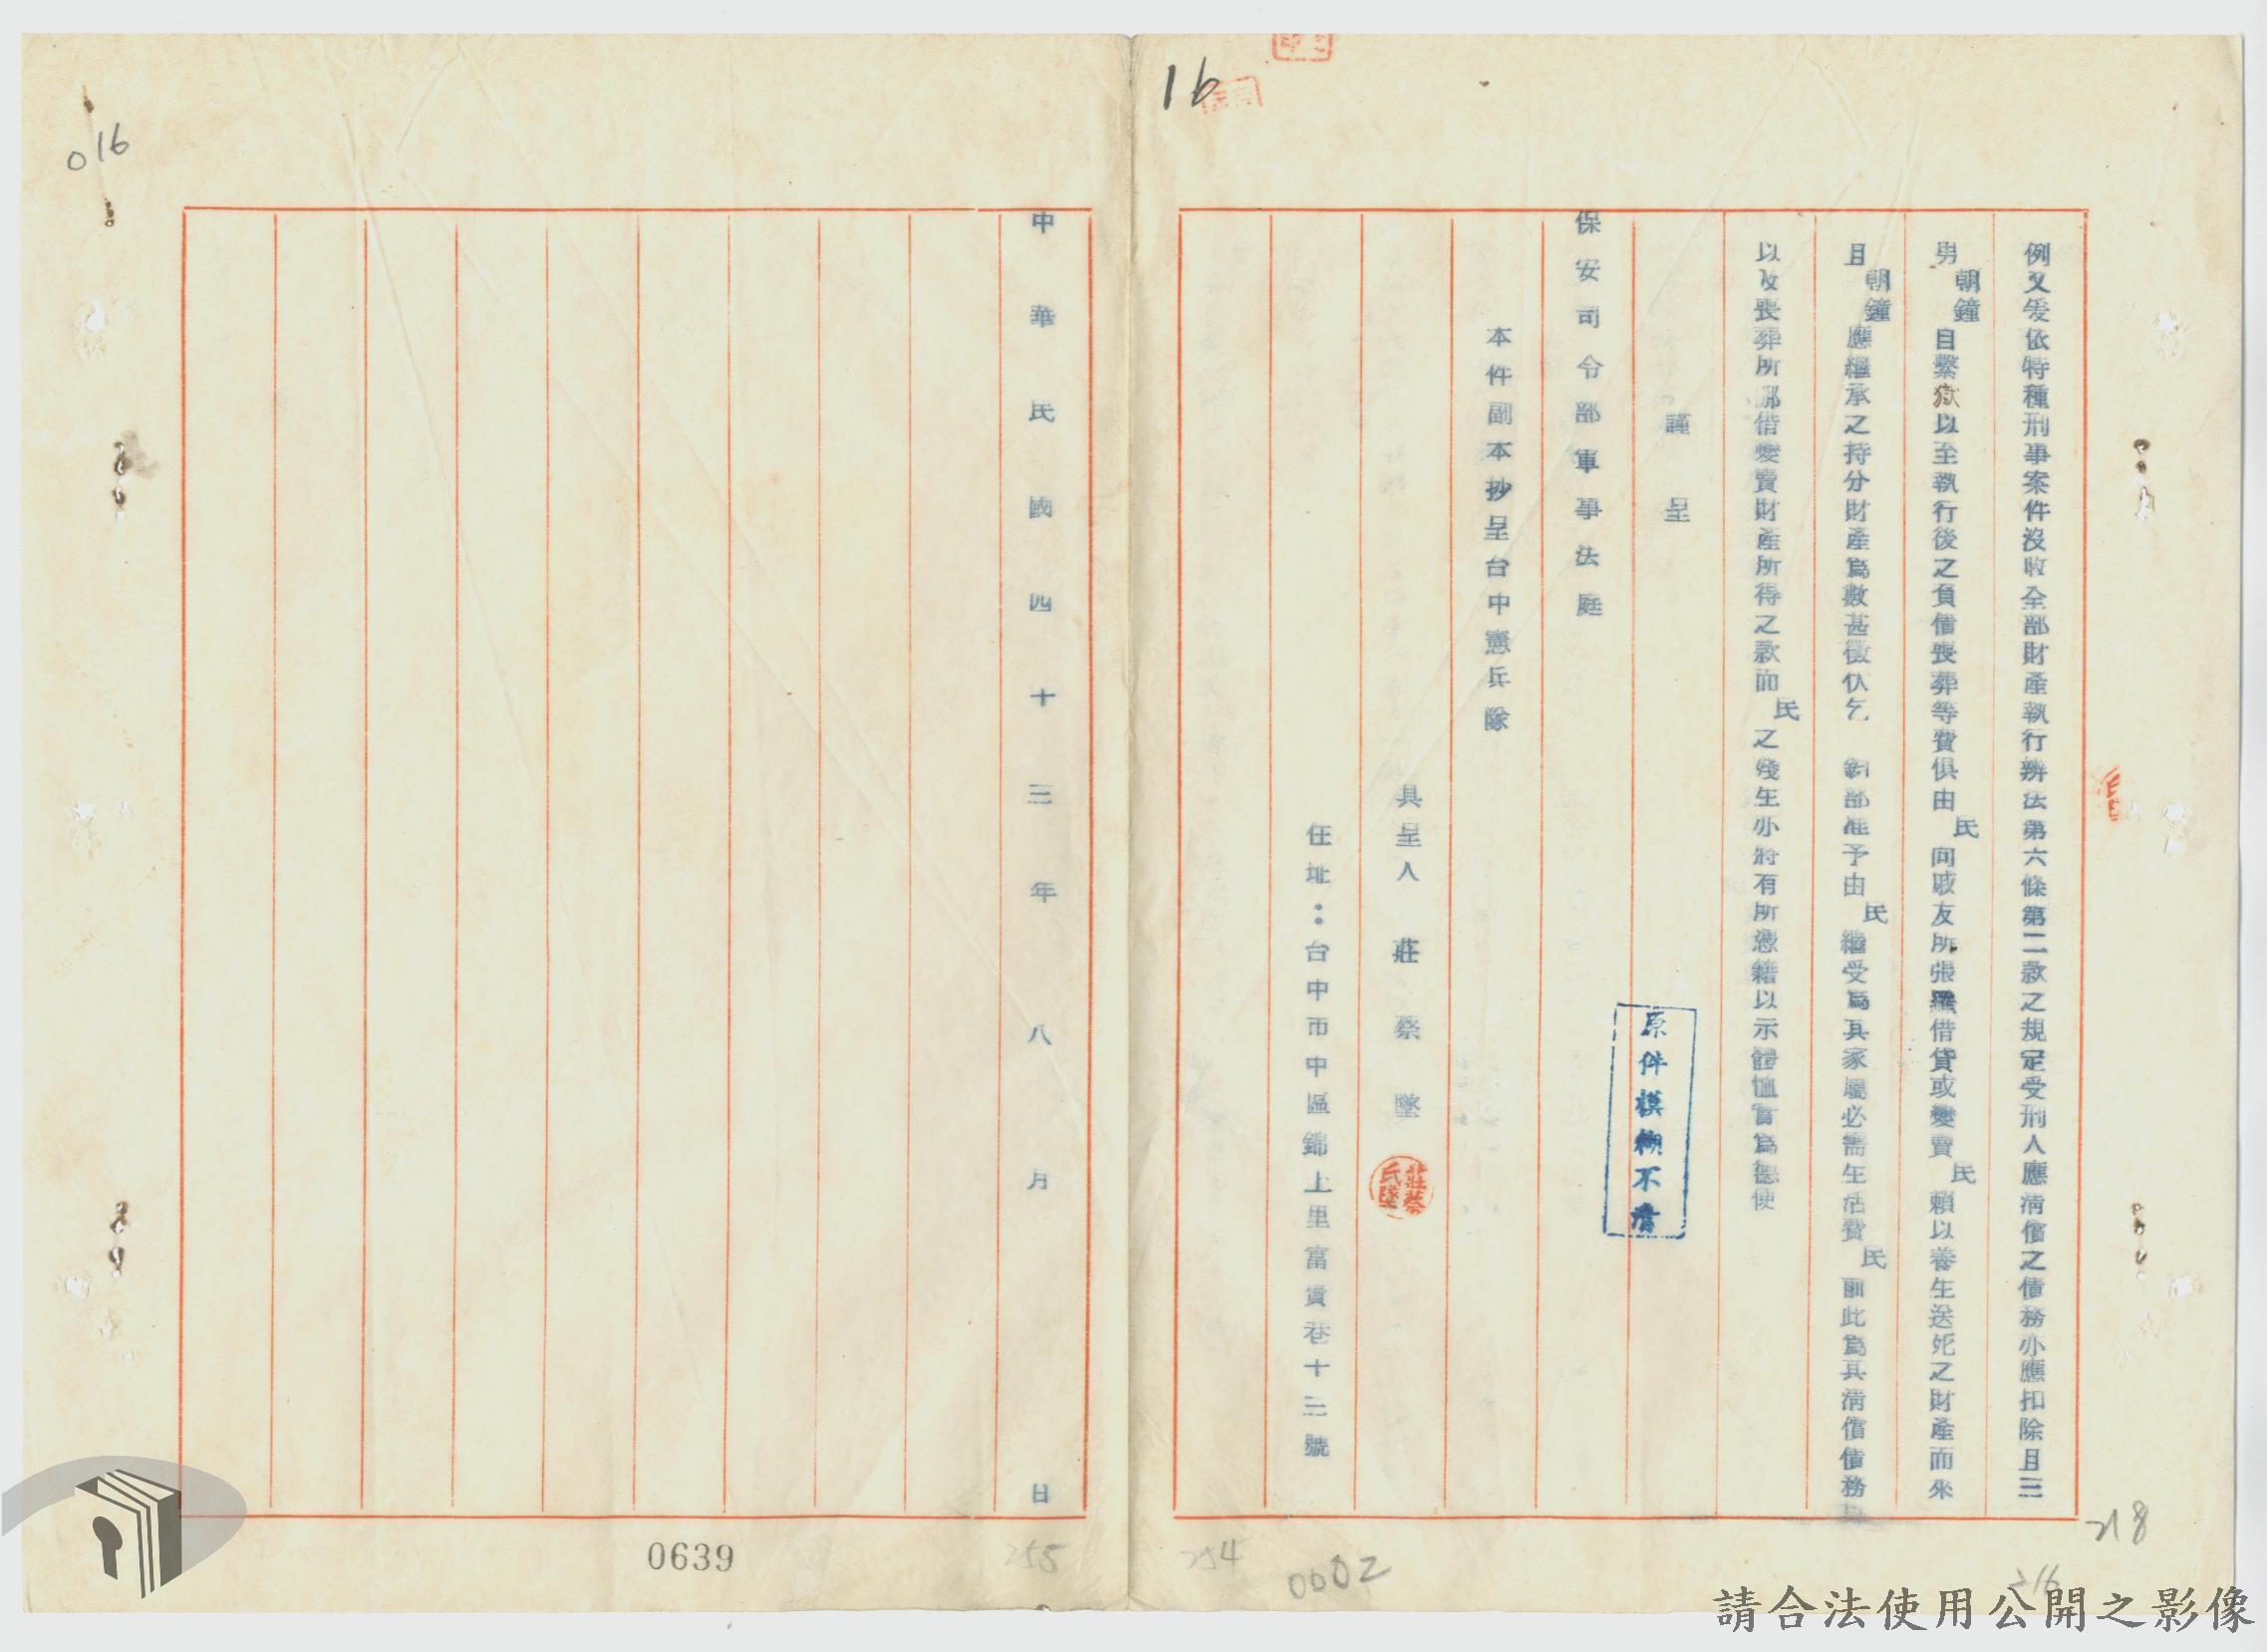 16
例又爰依特種刑事案件沒收全部財產執行辦法第六條第二款之規定受刑人應清償之債務亦應扣除且三
男朝鐘自繫獄以至執行後之負債喪葬等費俱由民向戚友所張羅借貸或變賣民賴以養生送死之財產而來
且朝鐘應繼承之持分財產為數甚微伏乞 鈞部准予由民繼受為其家屬必需生活費民前此為其清償債務以
以及喪葬所挪借變賣財產所得之款而民之殘生亦將有所憑藉以示體恤實為德便
謹呈
保安司令部軍事法庭
本件副本抄呈台中憲兵隊
具呈人 莊蔡墜
莊蔡氏墜
住址：台中市中區錦上里富貴巷十三號
原件模糊不清
中華民國四十三年八月 日
016
0639
255
254
0002
218
216
請合法使用公開之影像